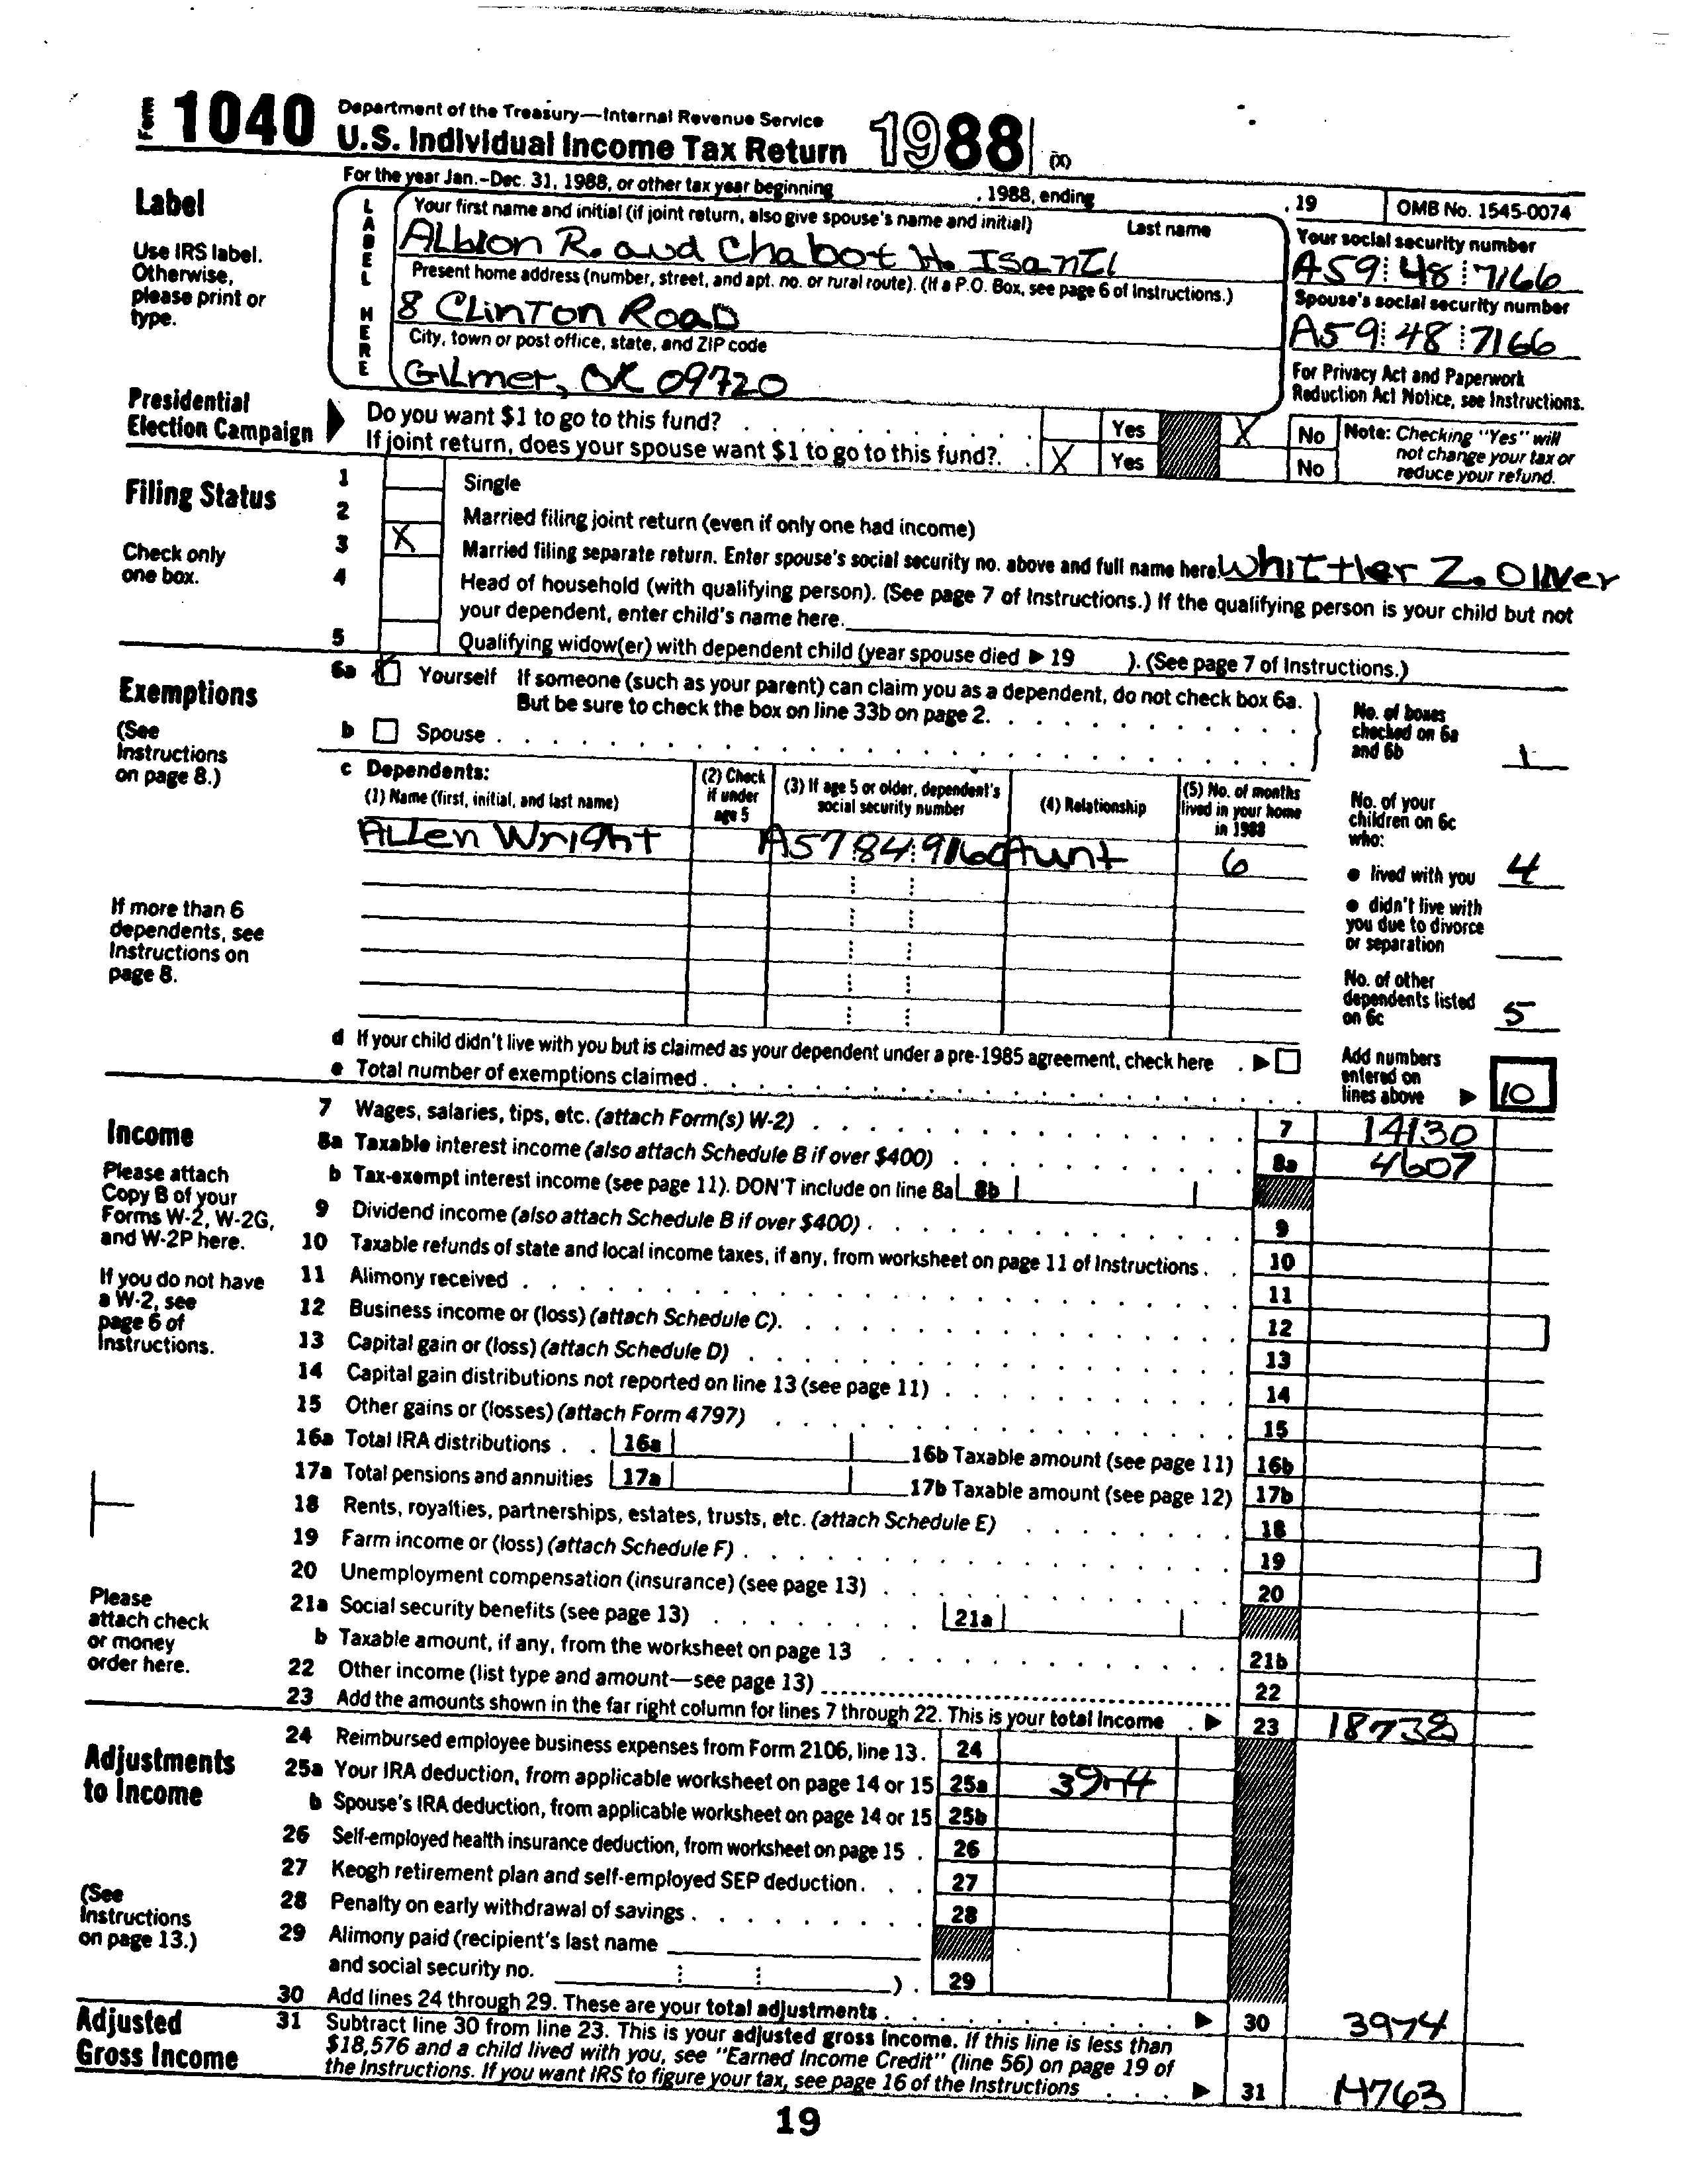 Form 1040 Department of the Treasury—Internal Revenue Service
U.S. Individual Income Tax Return 1988 (X)
For the year Jan.-Dec. 31, 1988, or other tax year beginning , 1988, ending , 19 OMB No. 1545-0074
Label
Use IRS label.
Otherwise,
please print or
type.
LABEL HERE
Your first name and initial (if joint return, also give spouse's name and initial) Last name
Albion R. and Chabot H. Isanti
Present home address (number, street, and apt. no. or rural route). (If a P.O. Box, see page 6 of Instructions.)
8 Clinton Road
City, town or post office, state, and ZIP code
Gilmer, OK 09720
Your social security number
A59 48 7166
Spouse's social security number
A59 48 7166
For Privacy Act and Paperwork
Reduction Act Notice, see Instructions.
Presidential
Election Campaign
Do you want $1 to go to this fund? Yes X No
If joint return, does your spouse want $1 to go to this fund? X Yes No
Note: Checking "Yes" will
not change your tax or
reduce your refund.
Filing Status
Check only
one box.
1 Single
2 Married filing joint return (even if only one had income)
3 X Married filing separate return. Enter spouse's social security no. above and full name here. Whittier Z. Oliver
4 Head of household (with qualifying person). (See page 7 of Instructions.) If the qualifying person is your child but not
your dependent, enter child's name here.
5 Qualifying widow(er) with dependent child (year spouse died ▶ 19 ). (See page 7 of Instructions.)
Exemptions
(See
Instructions
on page 8.)
6a X Yourself If someone (such as your parent) can claim you as a dependent, do not check box 6a.
But be sure to check the box on line 33b on page 2.
b Spouse
No. of boxes
checked on 6a
and 6b 1
c Dependents:
(1) Name (first, initial, and last name)
(2) Check
if under
age 5
(3) If age 5 or older, dependent's
social security number
(4) Relationship
(5) No. of months
lived in your home
in 1988
Allen Wright A57 84 9160 Aunt 6
No. of your
children on 6c
who:
● lived with you 4
● didn't live with
you due to divorce
or separation
No. of other
dependents listed
on 6c 5
If more than 6
dependents, see
Instructions on
page 8.
d If your child didn't live with you but is claimed as your dependent under a pre-1985 agreement, check here ▶
e Total number of exemptions claimed
Add numbers
entered on
lines above ▶ 10
Income
Please attach
Copy B of your
Forms W-2, W-2G,
and W-2P here.
If you do not have
a W-2, see
page 6 of
Instructions.
Please
attach check
or money
order here.
7 Wages, salaries, tips, etc. (attach Form(s) W-2) 7 14130
8a Taxable interest income (also attach Schedule B if over $400) 8a 4607
b Tax-exempt interest income (see page 11). DON'T include on line 8a 8b
9 Dividend income (also attach Schedule B if over $400) 9
10 Taxable refunds of state and local income taxes, if any, from worksheet on page 11 of Instructions 10
11 Alimony received 11
12 Business income or (loss) (attach Schedule C) 12
13 Capital gain or (loss) (attach Schedule D) 13
14 Capital gain distributions not reported on line 13 (see page 11) 14
15 Other gains or (losses) (attach Form 4797) 15
16a Total IRA distributions 16a 16b Taxable amount (see page 11) 16b
17a Total pensions and annuities 17a 17b Taxable amount (see page 12) 17b
18 Rents, royalties, partnerships, estates, trusts, etc. (attach Schedule E) 18
19 Farm income or (loss) (attach Schedule F) 19
20 Unemployment compensation (insurance) (see page 13) 20
21a Social security benefits (see page 13) 21a
b Taxable amount, if any, from the worksheet on page 13 21b
22 Other income (list type and amount—see page 13) 22
23 Add the amounts shown in the far right column for lines 7 through 22. This is your total income ▶ 23 18738
Adjustments
to Income
(See
Instructions
on page 13.)
24 Reimbursed employee business expenses from Form 2106, line 13. 24
25a Your IRA deduction, from applicable worksheet on page 14 or 15 25a 3974
b Spouse's IRA deduction, from applicable worksheet on page 14 or 15 25b
26 Self-employed health insurance deduction, from worksheet on page 15 26
27 Keogh retirement plan and self-employed SEP deduction 27
28 Penalty on early withdrawal of savings 28
29 Alimony paid (recipient's last name
and social security no. ) 29
30 Add lines 24 through 29. These are your total adjustments ▶ 30 3974
Adjusted
Gross Income
31 Subtract line 30 from line 23. This is your adjusted gross income. If this line is less than
$18,576 and a child lived with you, see "Earned Income Credit" (line 56) on page 19 of
the Instructions. If you want IRS to figure your tax, see page 16 of the Instructions ▶ 31 14763
19